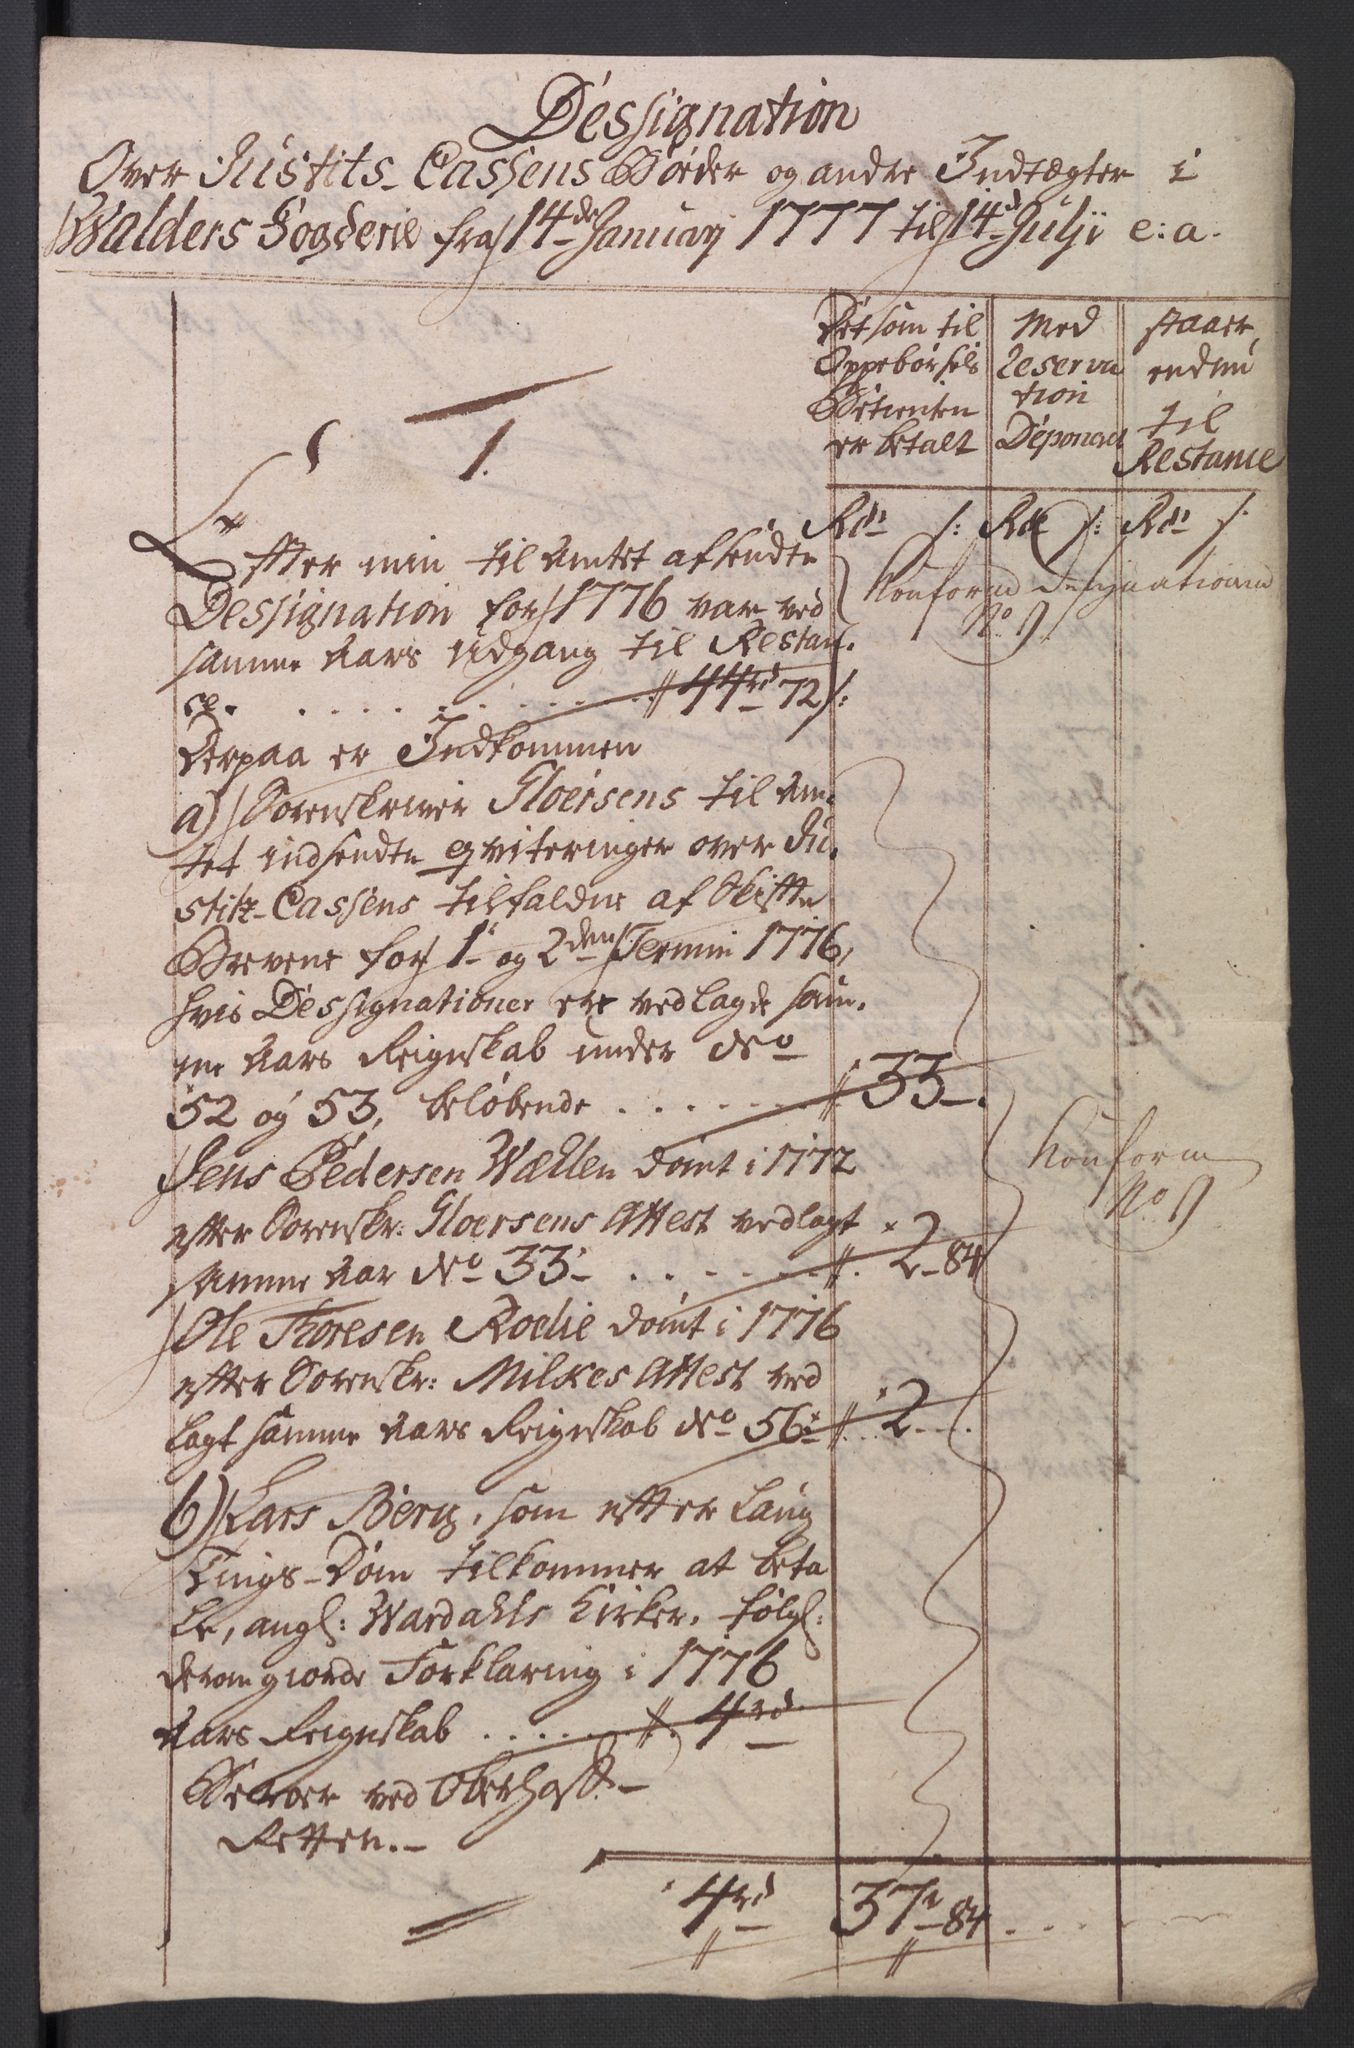 Dessignation
Over Justits-Cassens Bøder og andre Indtægter i
Walders Fogderie fra 14de Januarj 1777 til 14d Julji e: a.
Det som til
Oppebørsels
Betienten
er betalt
Med
Reserva
tion
Deponeret
staaer
endnu
til
Restance
1.
Rdr s: Rdr s: Rdr s:
Efter min til Amtet afsendte
Dessignation for 1776 var ved
samme Aars Udgang til Restan-
ce. . . . . . . . . 44rd 72 s:
Konform Designationen
No 1
Derpaa er Indkommen
a) Sorenskriver Gloersens til Am-
tet indsendte qviteringer over Ju-
stitz-Cassens tilfaldne af Skifte
Brevene for 1te og 2den Termin 1776,
hvis Dessignationer ere vedlagde sam-
me Aars Reignskab under No
52 og 53, beløbende . . . . . . 33 -.
Jens Pedersen Wæhlen dømt i 1772
efter Sorenskr: Gloersens Attest vedlagt
samme Aar No 33 - . . . . . . 2 - 84
Konform
No 1
Ole Thoresen Roelie dømt i 1776
efter Sorenskr: Milses Attest ved
lagt samme Aars Reignskab No 56 . . 2 - . .
b) Lars Berg, som efter Laug
Tings-Dom tilkommer at beta
le, angl: Wardahls Kirker, følgl:
derom giorde Forklaring i 1776
Aars Reignskab . . . . . 4rd
Beroer ved Oberhoff-
Retten. -
4rd 37r - 84 . . . .